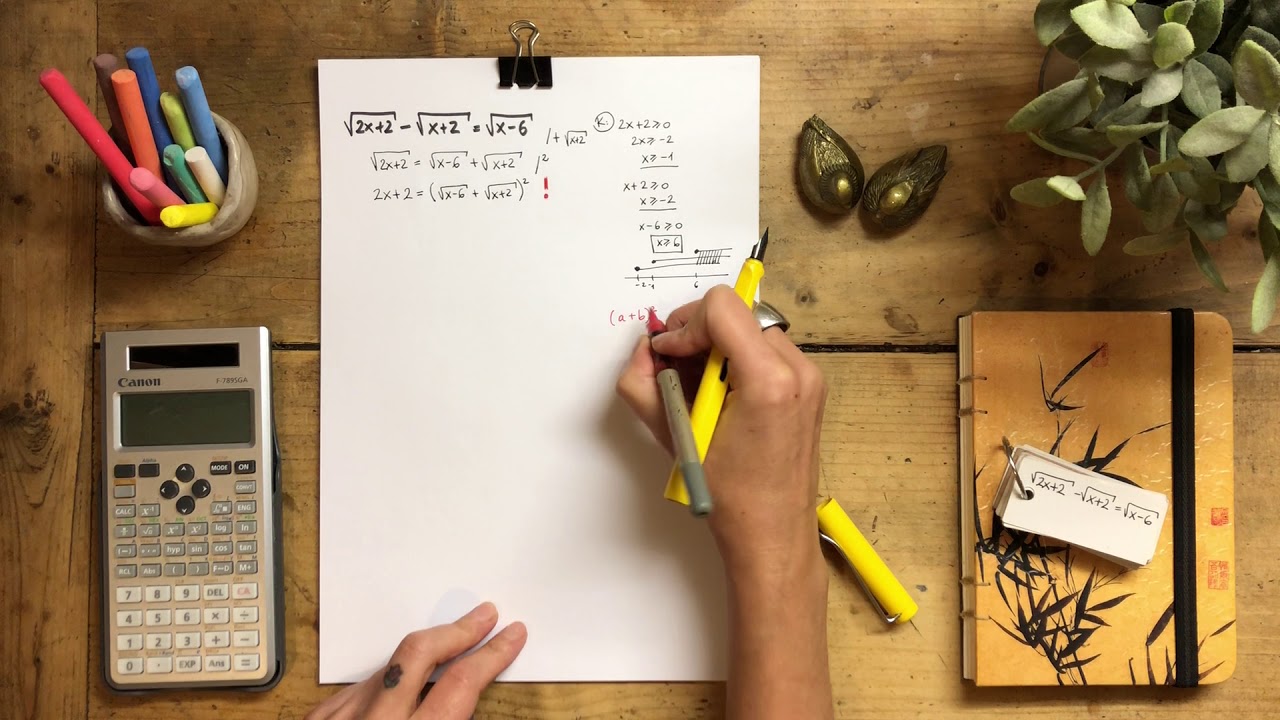 √2x+2 - √x+2 = √x-6 /+√x+2
√2x+2 = √x-6 + √x+2 /²
2x+2 = (√x-6 + √x+2)² !
K:
2x+2≥0
2x≥-2
x≥-1
x+2≥0
x≥-2
x-6≥0
x≥6
-2 -1 6
(a+b)
Canon
F-789SGA
MODE ON
CALC x⁻¹ ENG
log ln
(-) hyp sin cos tan
RCL Abs ( ) F↔D M+
7 8 9 DEL CA
4 5 6 × ÷
1 2 3 + −
0 · EXP Ans =
√2x+2 - √x+2 = √x-6